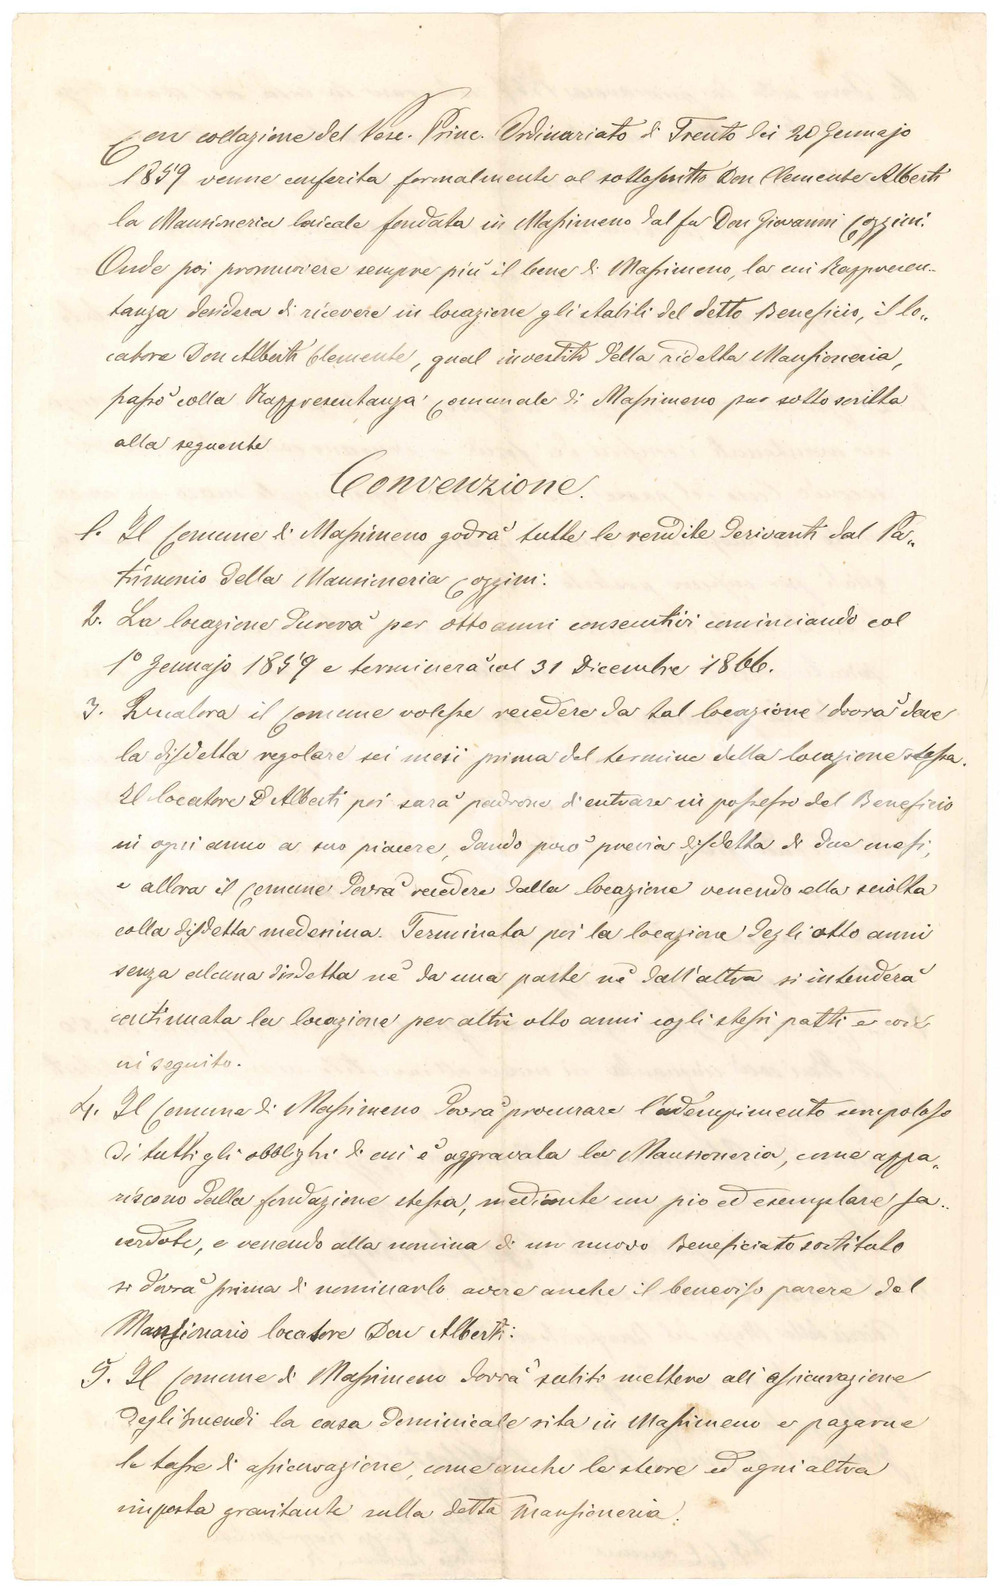 Con collazione del Vesc. Princ. Ordinariato di Trento dei 20 Gennajo
1859 venne conferita formalmente al sottoscritto Don Clemente Alberti
la Mansioneria laicale fondata in Massimeno dal fu Don Giovanni Cozzini.
Onde poi promuovere sempre più il bene di Massimeno, la cui Rappresen-
tanza desidera di ricevere in locazione gli stabili del detto Beneficio, il lo-
catore Don Alberti Clemente, qual investito della ridetta Mansioneria,
passò colla Rappresentanza Comunale di Massimeno pur sotto scritta
alla seguente
Convenzione.
1. Il Comune di Massimeno godrà tutte le rendite derivanti dal Pa-
trimonio della Mansioneria Cozzini.
2. La locazione durerà per otto anni consecutivi cominciando col
1º Gennajo 1859 e terminerà col 31 Dicembre 1866.
3. Qualora il Comune volesse recedere da tal locazione dovrà dare
la disdetta regolare sei mesi prima del termine della locazione stessa.
Il locatore D Alberti poi sarà padrone d'entrare in possesso del Beneficio
in ogni anno a suo piacere, dando però previa disdetta di due mesi,
e allora il Comune dovrà recedere dalla locazione venendo ella sciolta
colla disdetta medesima. Terminata poi la locazione degli otto anni
senza alcuna disdetta nè da una parte nè dall'altra si intenderà
continuata la locazione per altri otto anni cogli stessi patti e così
in seguito.
4. Il Comune di Massimeno dovrà procurare l'adempimento scrupoloso
di tutti gli obblighi di cui è aggravata la Mansioneria, come appa-
riscono dalla fondazione stessa, mediante un pio ed esemplare sa-
cerdote, e venendo alla nomina di un nuovo Beneficiato sostituto
si dovrà prima di nominarlo avere anche il beneviso parere del
Mansionario locatore Don Alberti.
5. Il Comune di Massimeno dovrà subito mettere all'assicurazione
degl'incendi la casa dominicale sita in Massimeno e pagarne
le tasse di assicurazione, come anche le steore ed ogni altra
imposta gravitante sulla detta Mansioneria.